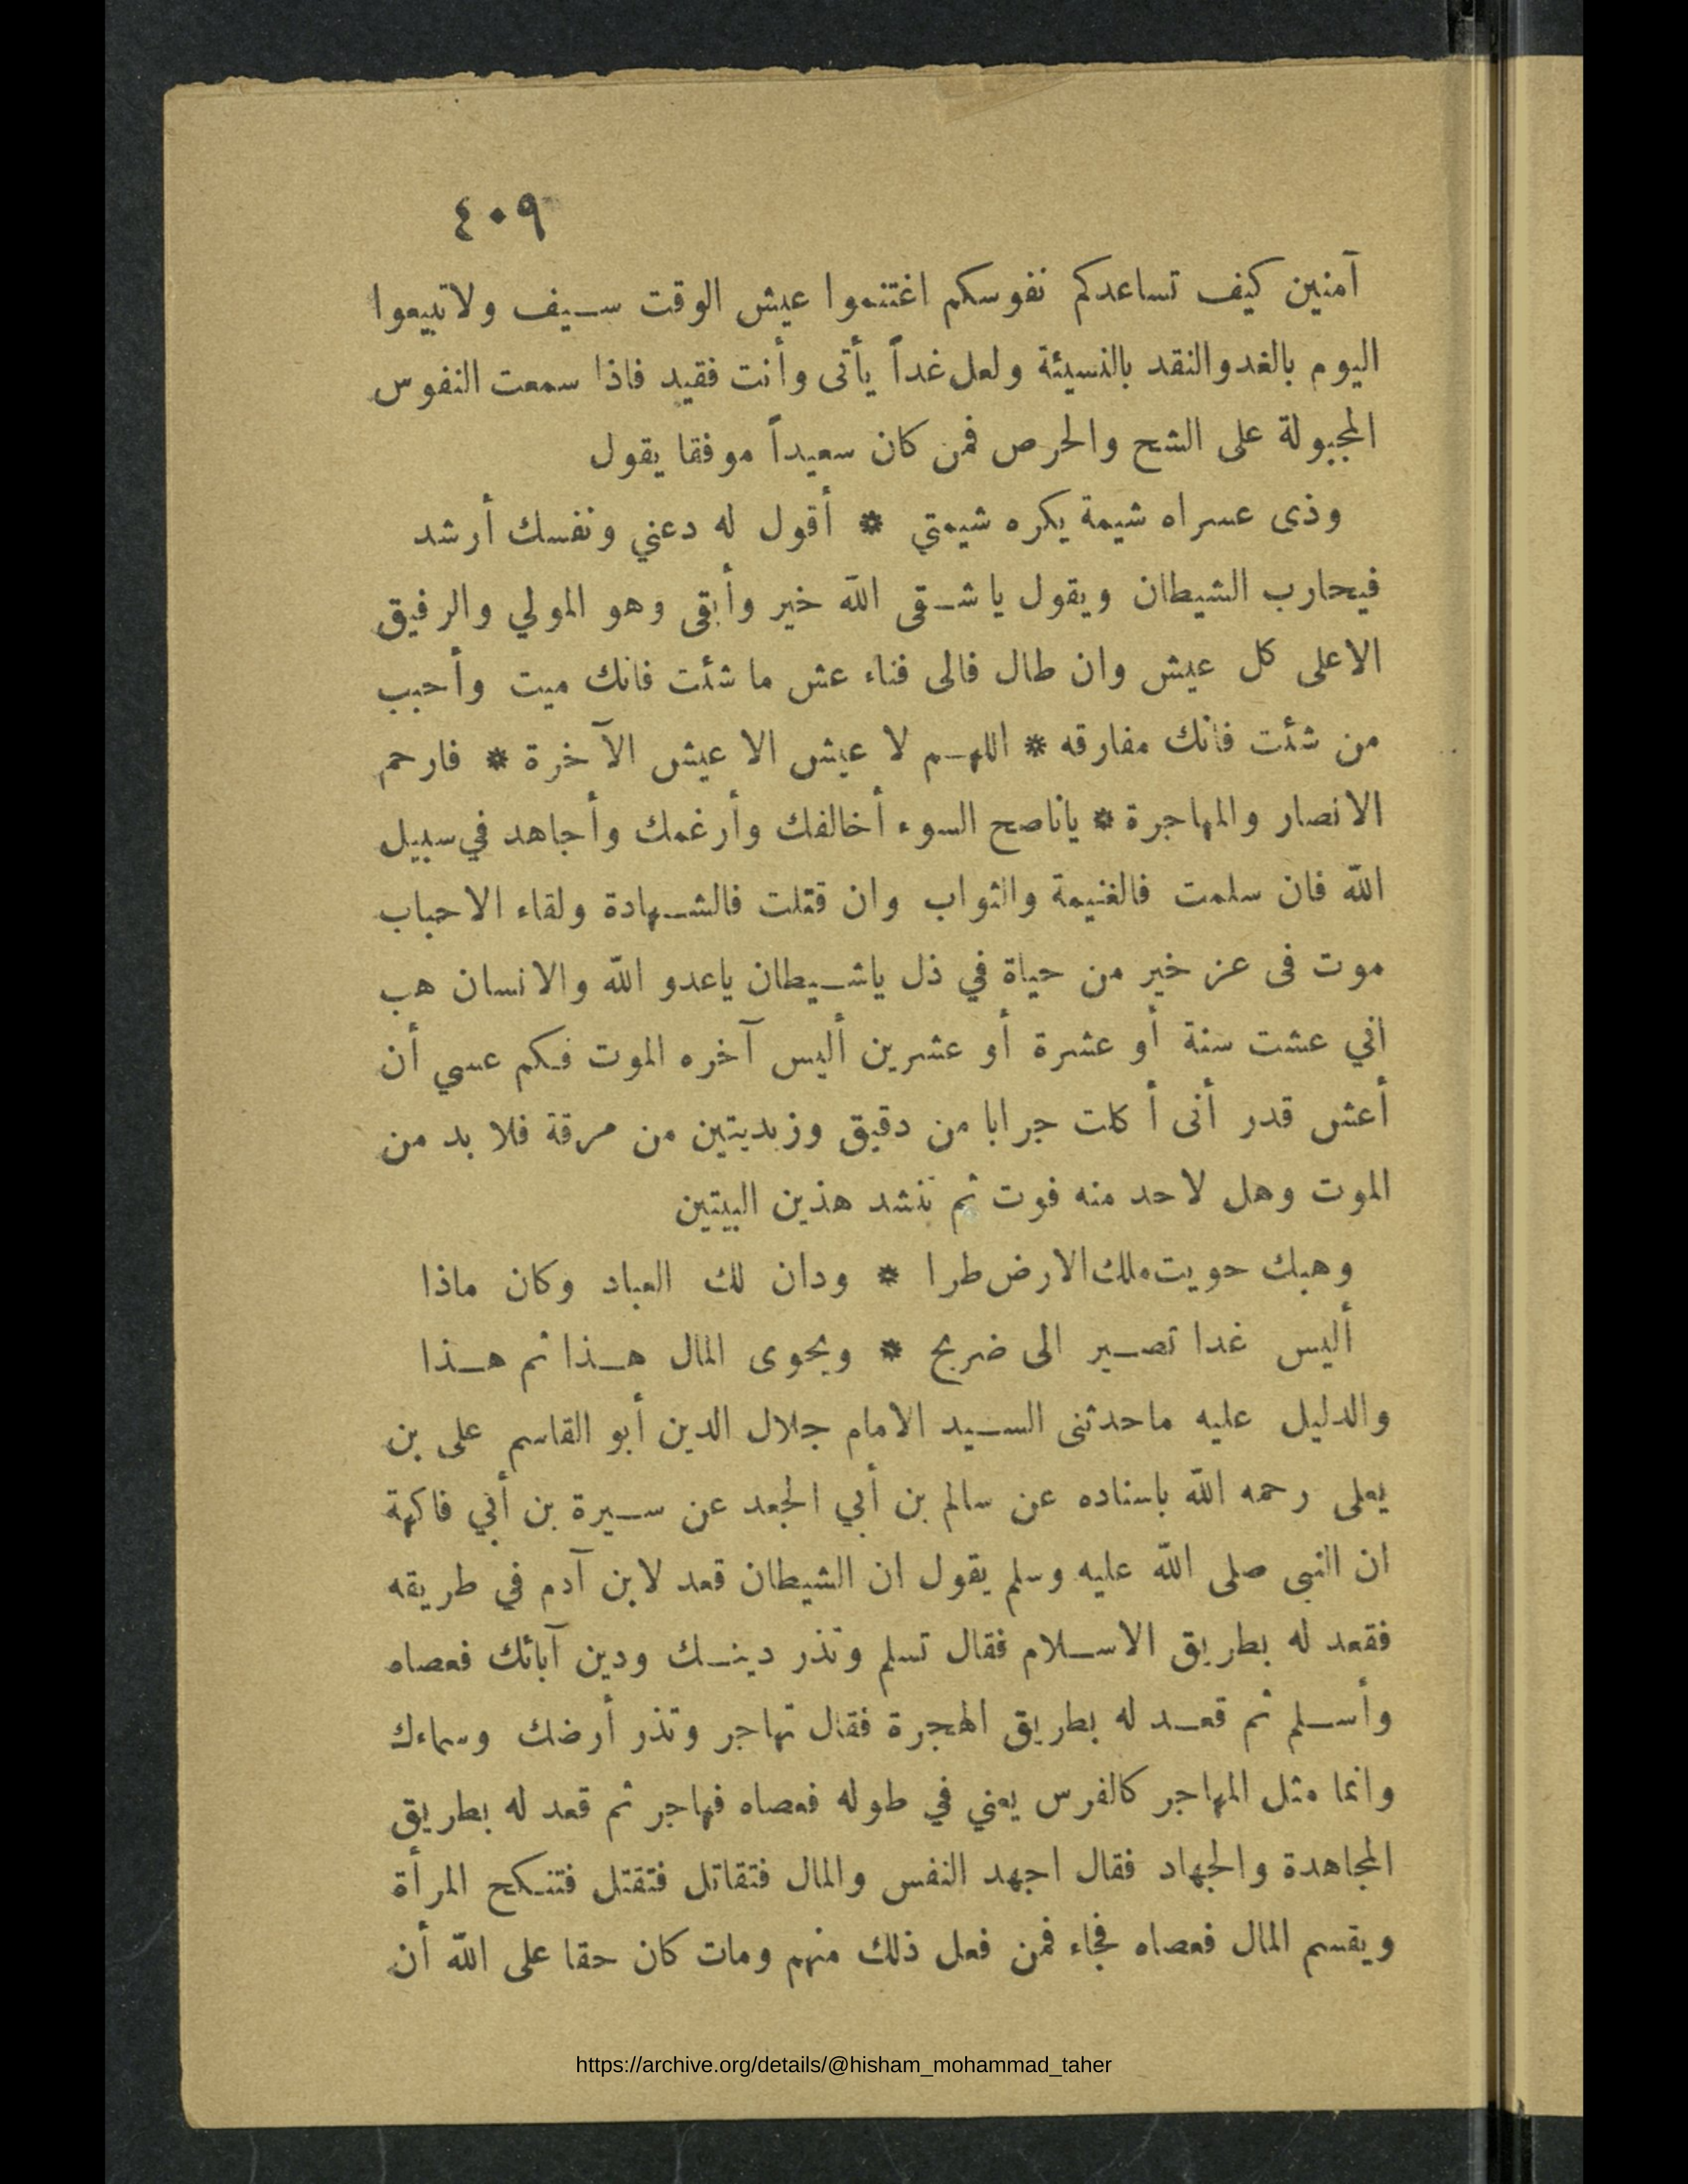 ٤٠٩
آمنين كيف تساعدكم نفوسكم اغتنموا عيش الوقت سيف ولا تبيعوا
اليوم بالغد والنقد بالنسيئة ولعل غداً يأتى وأنت فقيد فاذا سمعت النفوس
المجبولة على الشح والحرص فمن كان سعيداً موفقا يقول
وذى عسراه شيمة يكره شيمتي * أقول له دعني ونفسك أرشد
فيحارب الشيطان ويقول يا شقى الله خير وأبقى وهو المولي والرفيق
الاعلى كل عيش وان طال فالى فناء عش ما شئت فانك ميت وأحبب
من شئت فانك مفارقه * اللهم لا عيش الا عيش الآخرة * فارحم
الانصار والمهاجرة * ياناصح السوء أخالفك وأرغمك وأجاهد في سبيل
الله فان سلمت فالغنيمة والثواب وان قتلت فالشهادة ولقاء الاحباب
موت فى عز خير من حياة في ذل ياشيطان ياعدو الله والانسان هب
اني عشت سنة أو عشرة أو عشرين أليس آخره الموت فكم عسي أن
أعش قدر أنى أكلت جرابا من دقيق وزبديتين من مرقة فلا بد من
الموت وهل لاحد منه فوت ثم ننشد هذين البيتين
وهبك حويت ملك الارض طرا * ودان لك العباد وكان ماذا
أليس غدا تصير الى ضريح * ويحوى المال هذا ثم هذا
والدليل عليه ماحدثنى السيد الامام جلال الدين أبو القاسم على بن
يعلى رحمه الله باسناده عن سالم بن أبي الجعد عن سيرة بن أبي فاكهة
ان النبى صلى الله عليه وسلم يقول ان الشيطان قعد لابن آدم في طريقه
فقعد له بطريق الاسلام فقال تسلم وتذر دينك ودين آبائك فعصاه
وأسلم ثم قعد له بطريق الهجرة فقال تهاجر وتذر أرضك وسماءك
وانما مثل المهاجر كالفرس يعني في طوله فعصاه فهاجر ثم قعد له بطريق
المجاهدة والجهاد فقال اجهد النفس والمال فتقاتل فتقتل فتنكح المرأة
ويقسم المال فعصاه فجاء فمن فعل ذلك منهم ومات كان حقا على الله أن
https://archive.org/details/@hisham_mohammad_taher